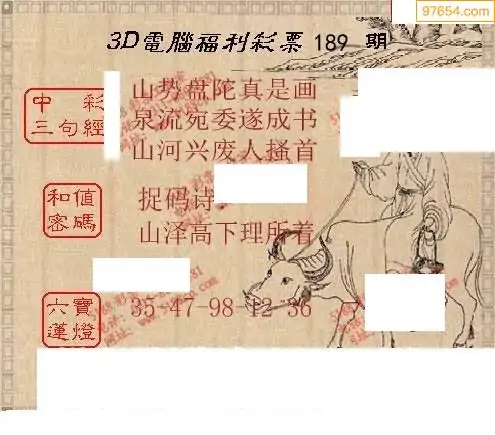 97654.com
3D電腦福利彩票 189 期
中彩
三句經
山势盘陀真是画
泉流宛委遂成书
山河兴废人搔首
和值
密碼
捉码诗
山泽高下理所着
六寶
蓮燈
35-47-98-12-36